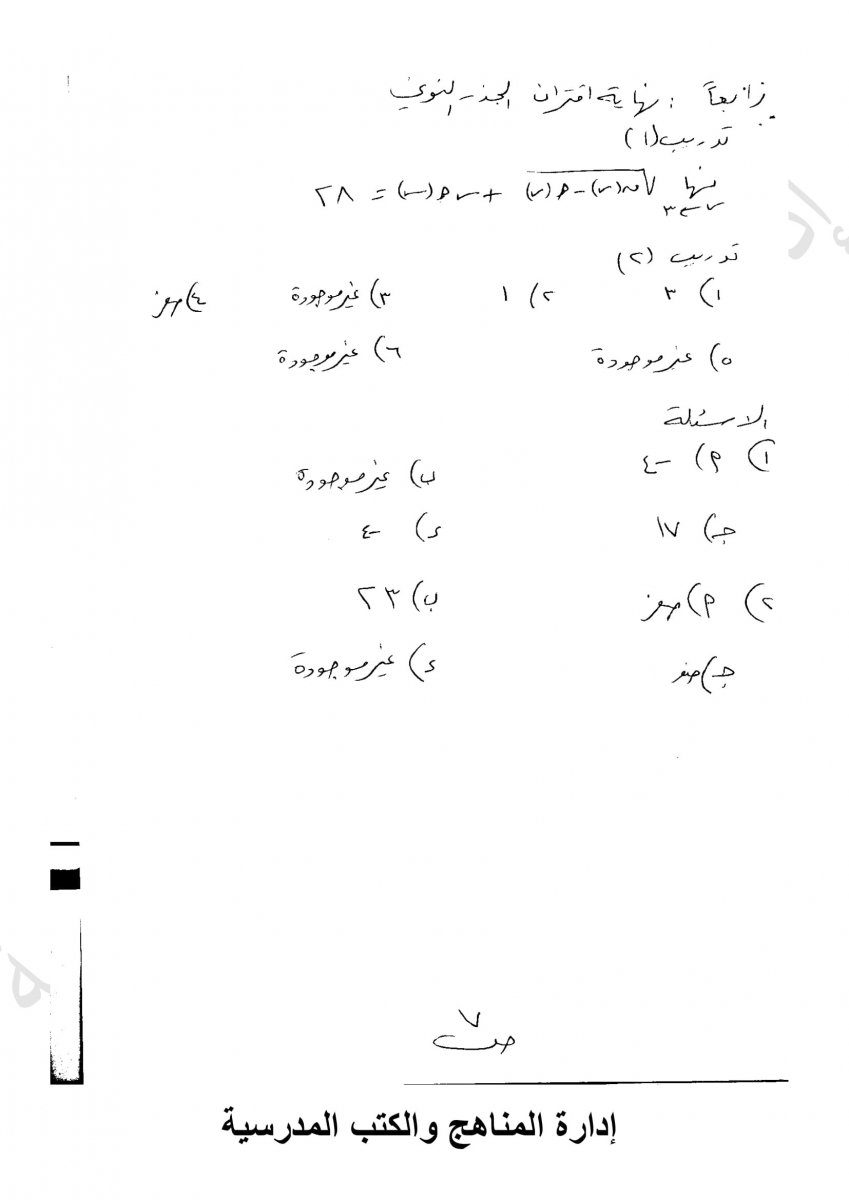 رابعاً : نهاية اقتران الجذر النوني
تدريب (١)
نهـا س←٣ √ق(س) - هـ(س) + س هـ(س) = ٢٨
تدريب (٢)
١) ٣ ٢) ١ ٣) غير موجودة ٤) صفر
٥) غير موجودة ٦) غير موجودة
الاسئلة
١) م) -٤ ب) غير موجودة
جـ) ١٧ ء) -٤
٢) م) صفر ب) ٢٣
جـ) صفر ء) غير موجودة
ص ٧
إدارة المناهج والكتب المدرسية